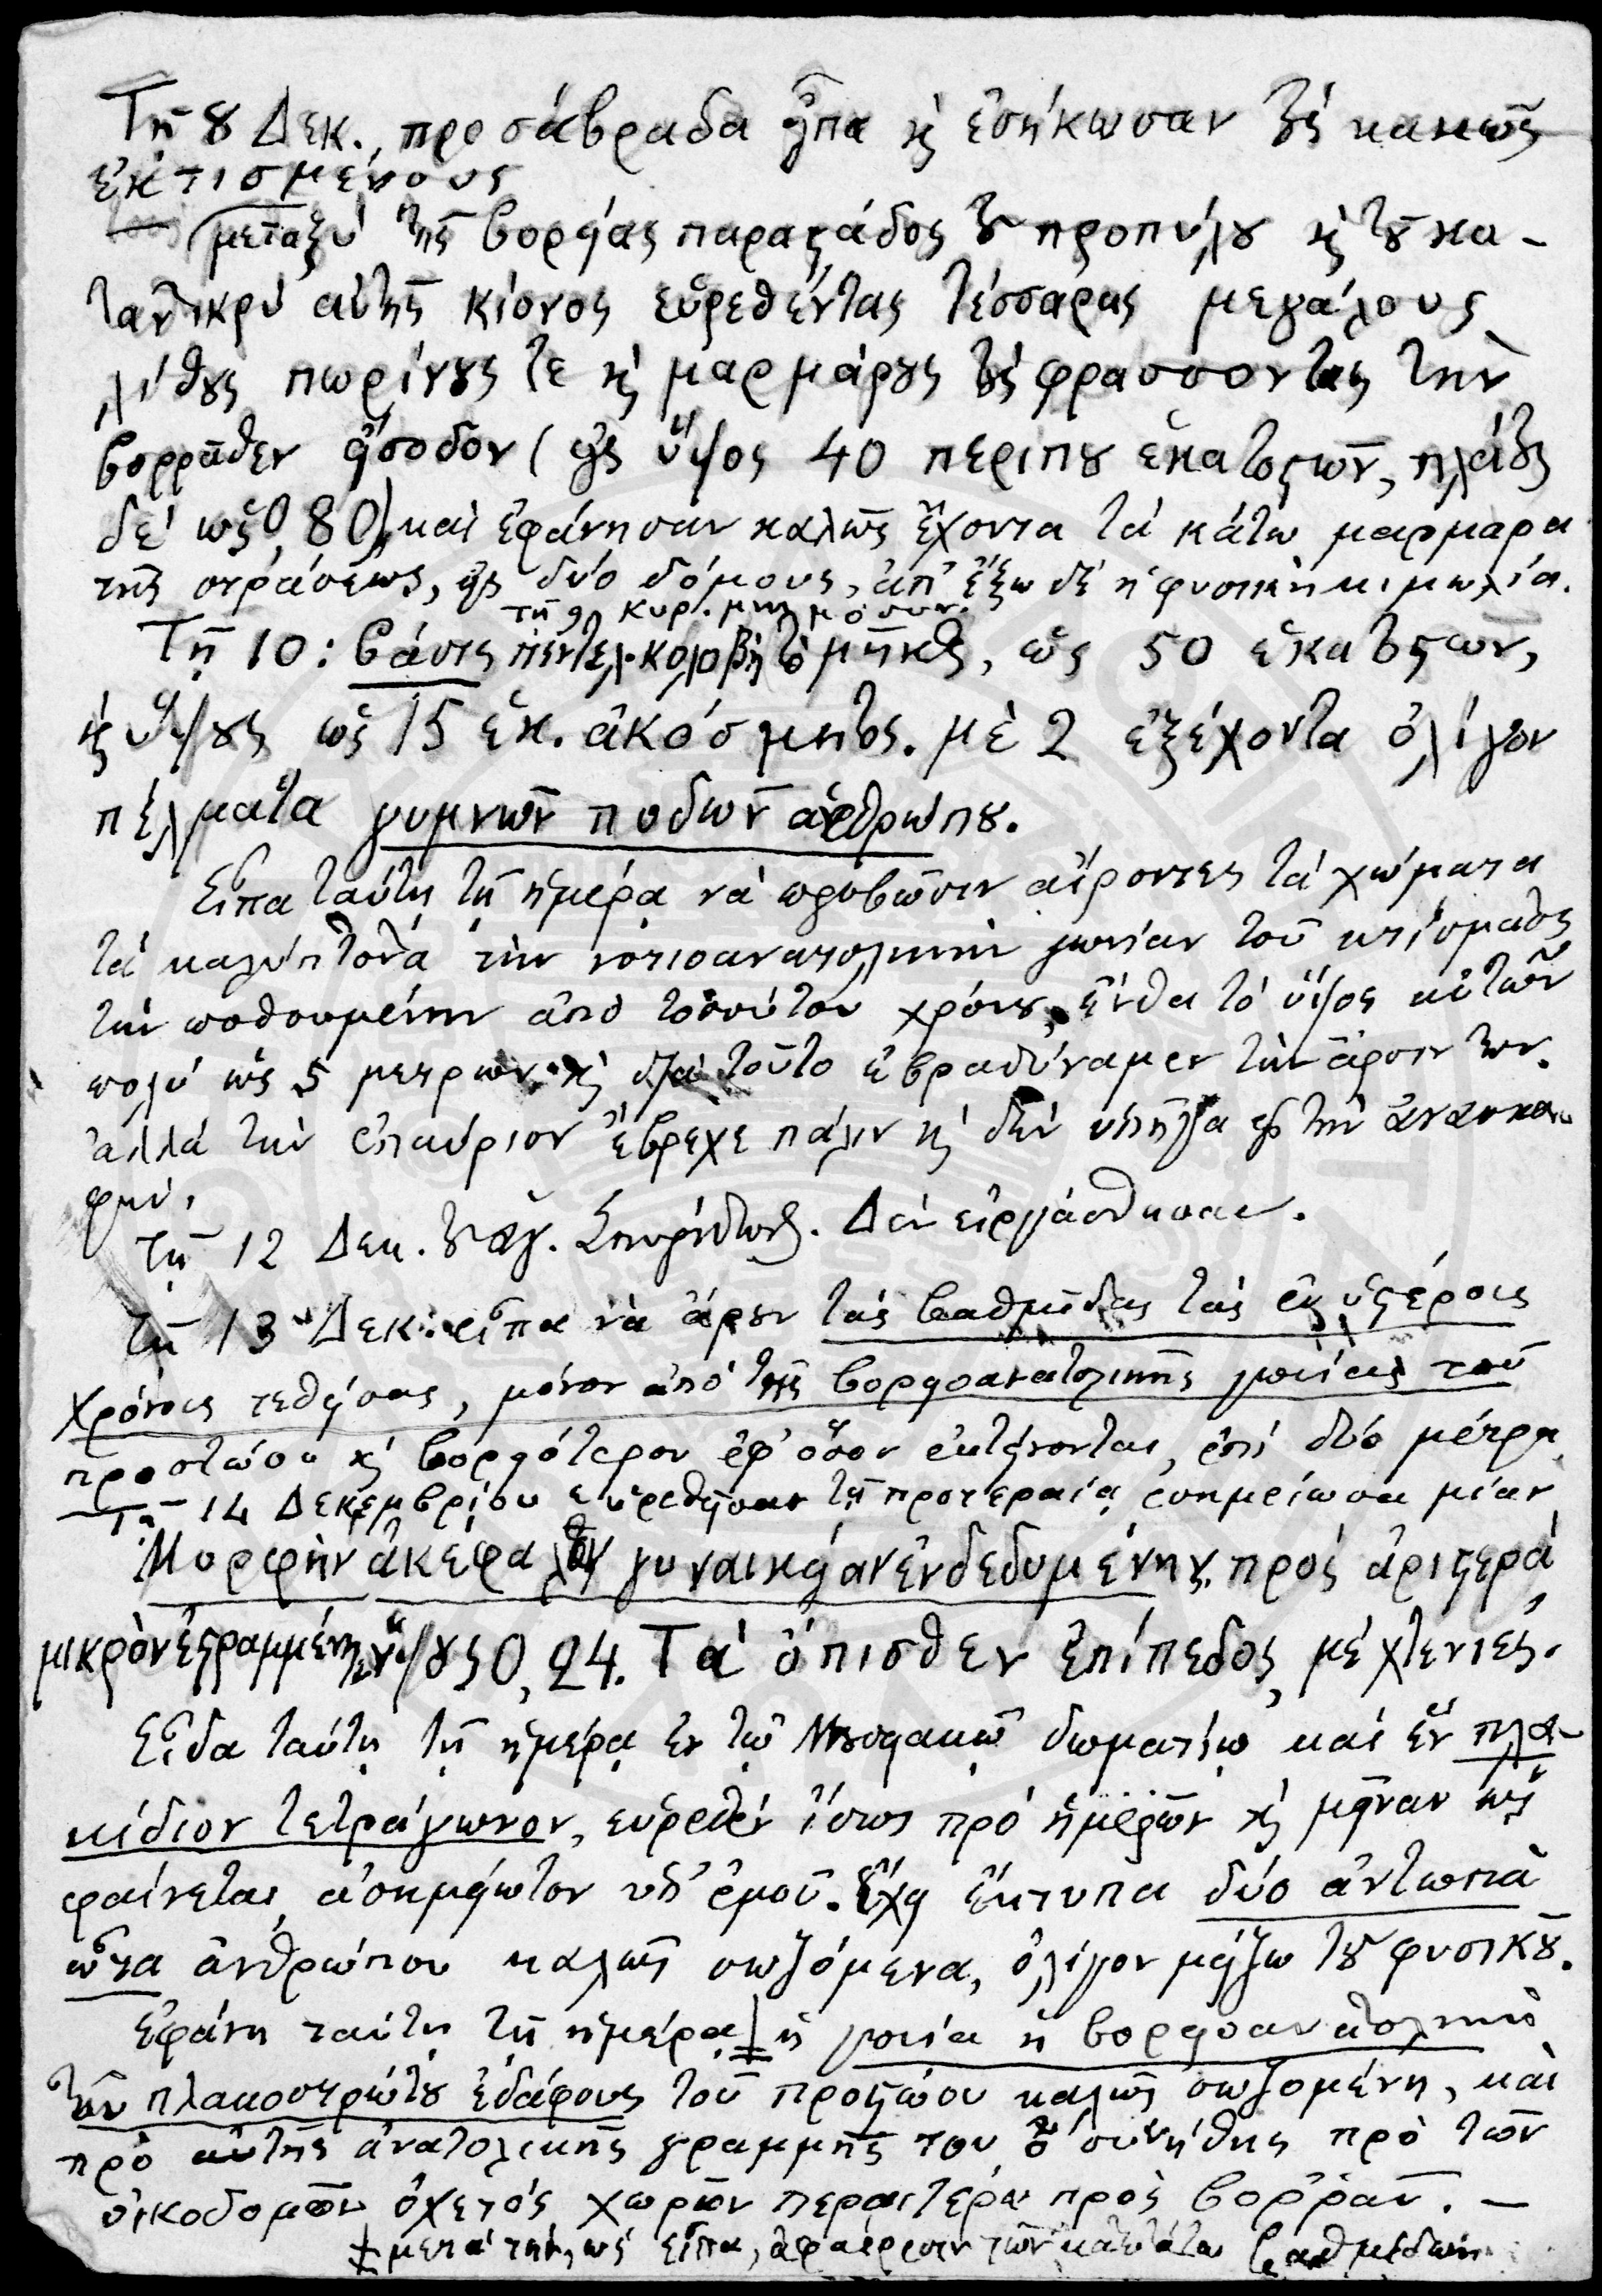 Τῇ 8 Δεκ., προσάββαδα εἶπα κ̀ ἐσήκωσαν τοὺς κακῶς
ἐκτισμένους
μεταξὺ τῆς βορείας παραστάδος τοῦ προπύλου κ̀ τοῦ κα-
ταντικρὺ αὐτῆς κίονος εὑρεθέντας τέσσαρας μεγάλους
λίθους πωρίνους τε κ̀ μαρμάρους τοὺς φράσσοντας τὴν
βορρᾶθεν εἴσοδον (εἰς ὕψος 40 περίπου ἑκατοστῶν, πλάτος
δὲ ὡς 0,80), καὶ ἐφάνησαν καλῶς ἔχοντα τὰ κάτω μάρμαρα
τῆς στρώσεως, εἰς δύο δόμους, ἀπ' ἔξω δὲ ἡ φυσικὴ κιμωλία.
τῇ 9 Κυρ. μνημόσυν.
Τῇ 10: βάσις πεντελ. κολοβὴ τὸ μῆκος, ὡς 50 ἑκατοστῶν,
κ̀ ὕψους ὡς 15 ἑκ. ἀκόσμητος. μὲ 2 ἐξέχοντα ὀλίγον
πέλματα γυμνῶν ποδῶν ἀνθρώπου.
Εἶπα ταύτῃ τῇ ἡμέρᾳ νὰ προβῶσιν αἴροντες τὰ χώματα
τὰ καλύπτοντα τὴν νοτιοανατολικὴν γωνίαν τοῦ κτίσματος
τὴν ποθουμένην ἀπὸ τοσούτου χρόνου, ἔνθα τὸ ὕψος αὐτῶν
πολὺ ὡς 5 μέτρων κ̀ διὰ τοῦτο ἐβραδύναμεν τὴν ἄρσιν των.
ἀλλὰ τὴν ἐπαύριον ἔβρεχε πάλιν κ̀ δὲν ὑπῆγα εἰς τὴν ἀνασκα-
φήν.
Τῇ 12 Δεκ. τοῦ ἁγ. Σπυρίδωνος. Δὲν εἰργάσθησαν.
Τῇ 13 Δεκ. εἶπα νὰ ἄρουν τὰς βαθμῖδας τὰς ἐν ὑστέροις
χρόνοις τεθείσας, μόνον ἀπὸ τῆς βορειοανατολικῆς γωνίας τοῦ
προστώου κ̀ βορειότερον ἐφ' ὅσον ἐκτείνονται, ἐπὶ δύο μέτρα
Τῇ 14 Δεκεμβρίου εὑρεθεῖσαν τῇ προτεραίᾳ ἐσημείωσα μίαν
Μορφὴν ἀκέφαλον γυναικείαν ἐνδεδυμένην, πρὸς ἀριστερὰ
μικρὸν ἐστραμμένην, ὕψους 0,24. Τὰ ὄπισθεν ἐπίπεδος, μὲ χτενιές.
Εἶδα ταύτῃ τῇ ἡμέρᾳ ἐν τῷ Μουσειακῷ δωματίῳ καὶ ἓν πλα-
κίδιον τετράγωνον, εὑρεθὲν ἴσως πρὸ ἡμερῶν κ̀ μεῖναν ὡς
φαίνεται ἀσημείωτον ὑπ' ἐμοῦ. Ἔχει ἔκτυπα δύο ἀντωπὰ
ὦτα ἀνθρώπου καλῶς σωζόμενα, ὀλίγον μείζω τοῦ φυσικοῦ.
Ἐφάνη ταύτῃ τῇ ἡμέρᾳ ‡ ἡ γωνία ἡ βορειοανατολικὴ
τοῦ πλακοστρώτου ἐδάφους τοῦ προστώου καλῶς σωζομένη, καὶ
πρὸ αὐτῆς ἀνατολικῆς γραμμῆς του ὁ συνήθης πρὸ τῶν
οἰκοδομῶν ὀχετὸς χωρῶν περαιτέρω πρὸς βορρᾶν. —
‡ μετὰ τὴν, ὡς εἶπα, ἀφαίρεσιν τῶν κατωτάτω βαθμίδων